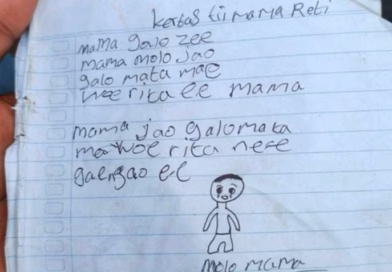 kertas tii mama Reti
mama galo zee
mama molo jao
galo mata mae
woe rita ee mama
mama jao galo mata
ma woe rita nere
ee
molo mama